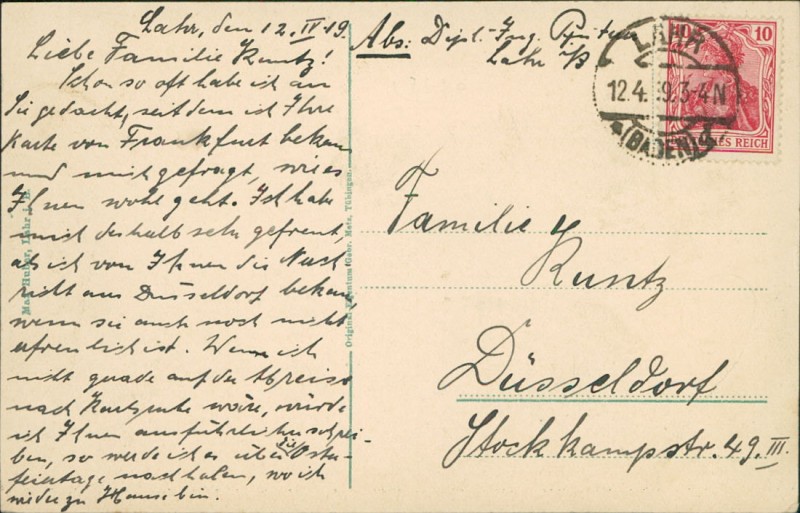 Lahr, den 12.IV.19.
Liebe Familie Kuntz!
Schon so oft habe ich an
Sie gedacht, seitdem ich Ihre
Karte von Frankfurt bekam
und mich gefragt, wie es
Ihnen wohl geht. Ich habe
mich deshalb sehr gefreut,
als ich von Ihnen die Nach
richt aus Düsseldorf bekam,
wenn sie auch noch nicht
erfreulich ist. Wenn ich
nicht gerade auf der Abreise
nach Karlsruhe wäre, würde
ich Ihnen ausführlicher schrei-
ben, so werde ich es über die Oster-
feiertage nachholen, wo ich
wieder zu Hause bin.
Abs: Dipl.-Ing.
Lahr i/B
LAHR
12.4.19.3-4N
(BADEN)
10
REICH
Familie
Kuntz
Düsseldorf
Stockkampstr. 49 III.
Max Huber, Lahr i. B.
Gebr. Metz, Tübingen.